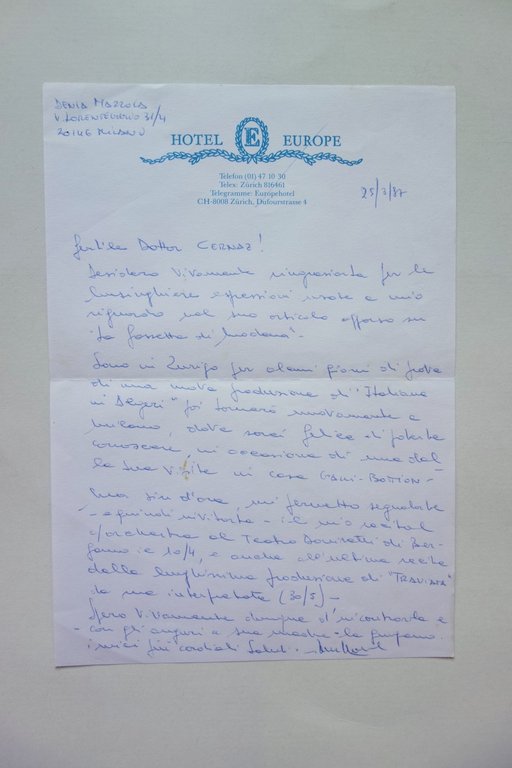 DENIA MAZZOLA
V. LORENTEGGIO 31/4
20146 MILANO
HOTEL E EUROPE
Telefon (01) 47 10 30
Telex: Zürich 816461
Telegramme: Europehotel
CH-8008 Zürich, Dufourstrasse 4
25/3/87
Gentile Dottor CERNAZ!
Desidero vivamente ringraziarla per le
lusinghiere espressioni usate a mio
riguardo nel suo articolo apparso su
"La Gazzetta di Modena".
Sono in Zurigo per alcuni giorni di prove
di una nuova produzione di "Italiana
in Algeri" poi tornerò nuovamente a
Milano, dove sarei felice di poterla
conoscere, in occasione di una del
la Sue visite in casa
Ma sin d'ora, mi permetto segnalarle
- e quindi invitarla - il mio recital
c/orchestra al Teatro Donizetti di Ber-
gamo il 10/4, e anche all'ultima recita
della lunghissima produzione di "TRAVIATA"
da me interpretata (30/5) -
Spero vivamente dunque d'incontrarla e
- con gli auguri a sua madre - la prego
i miei più cordiali saluti.